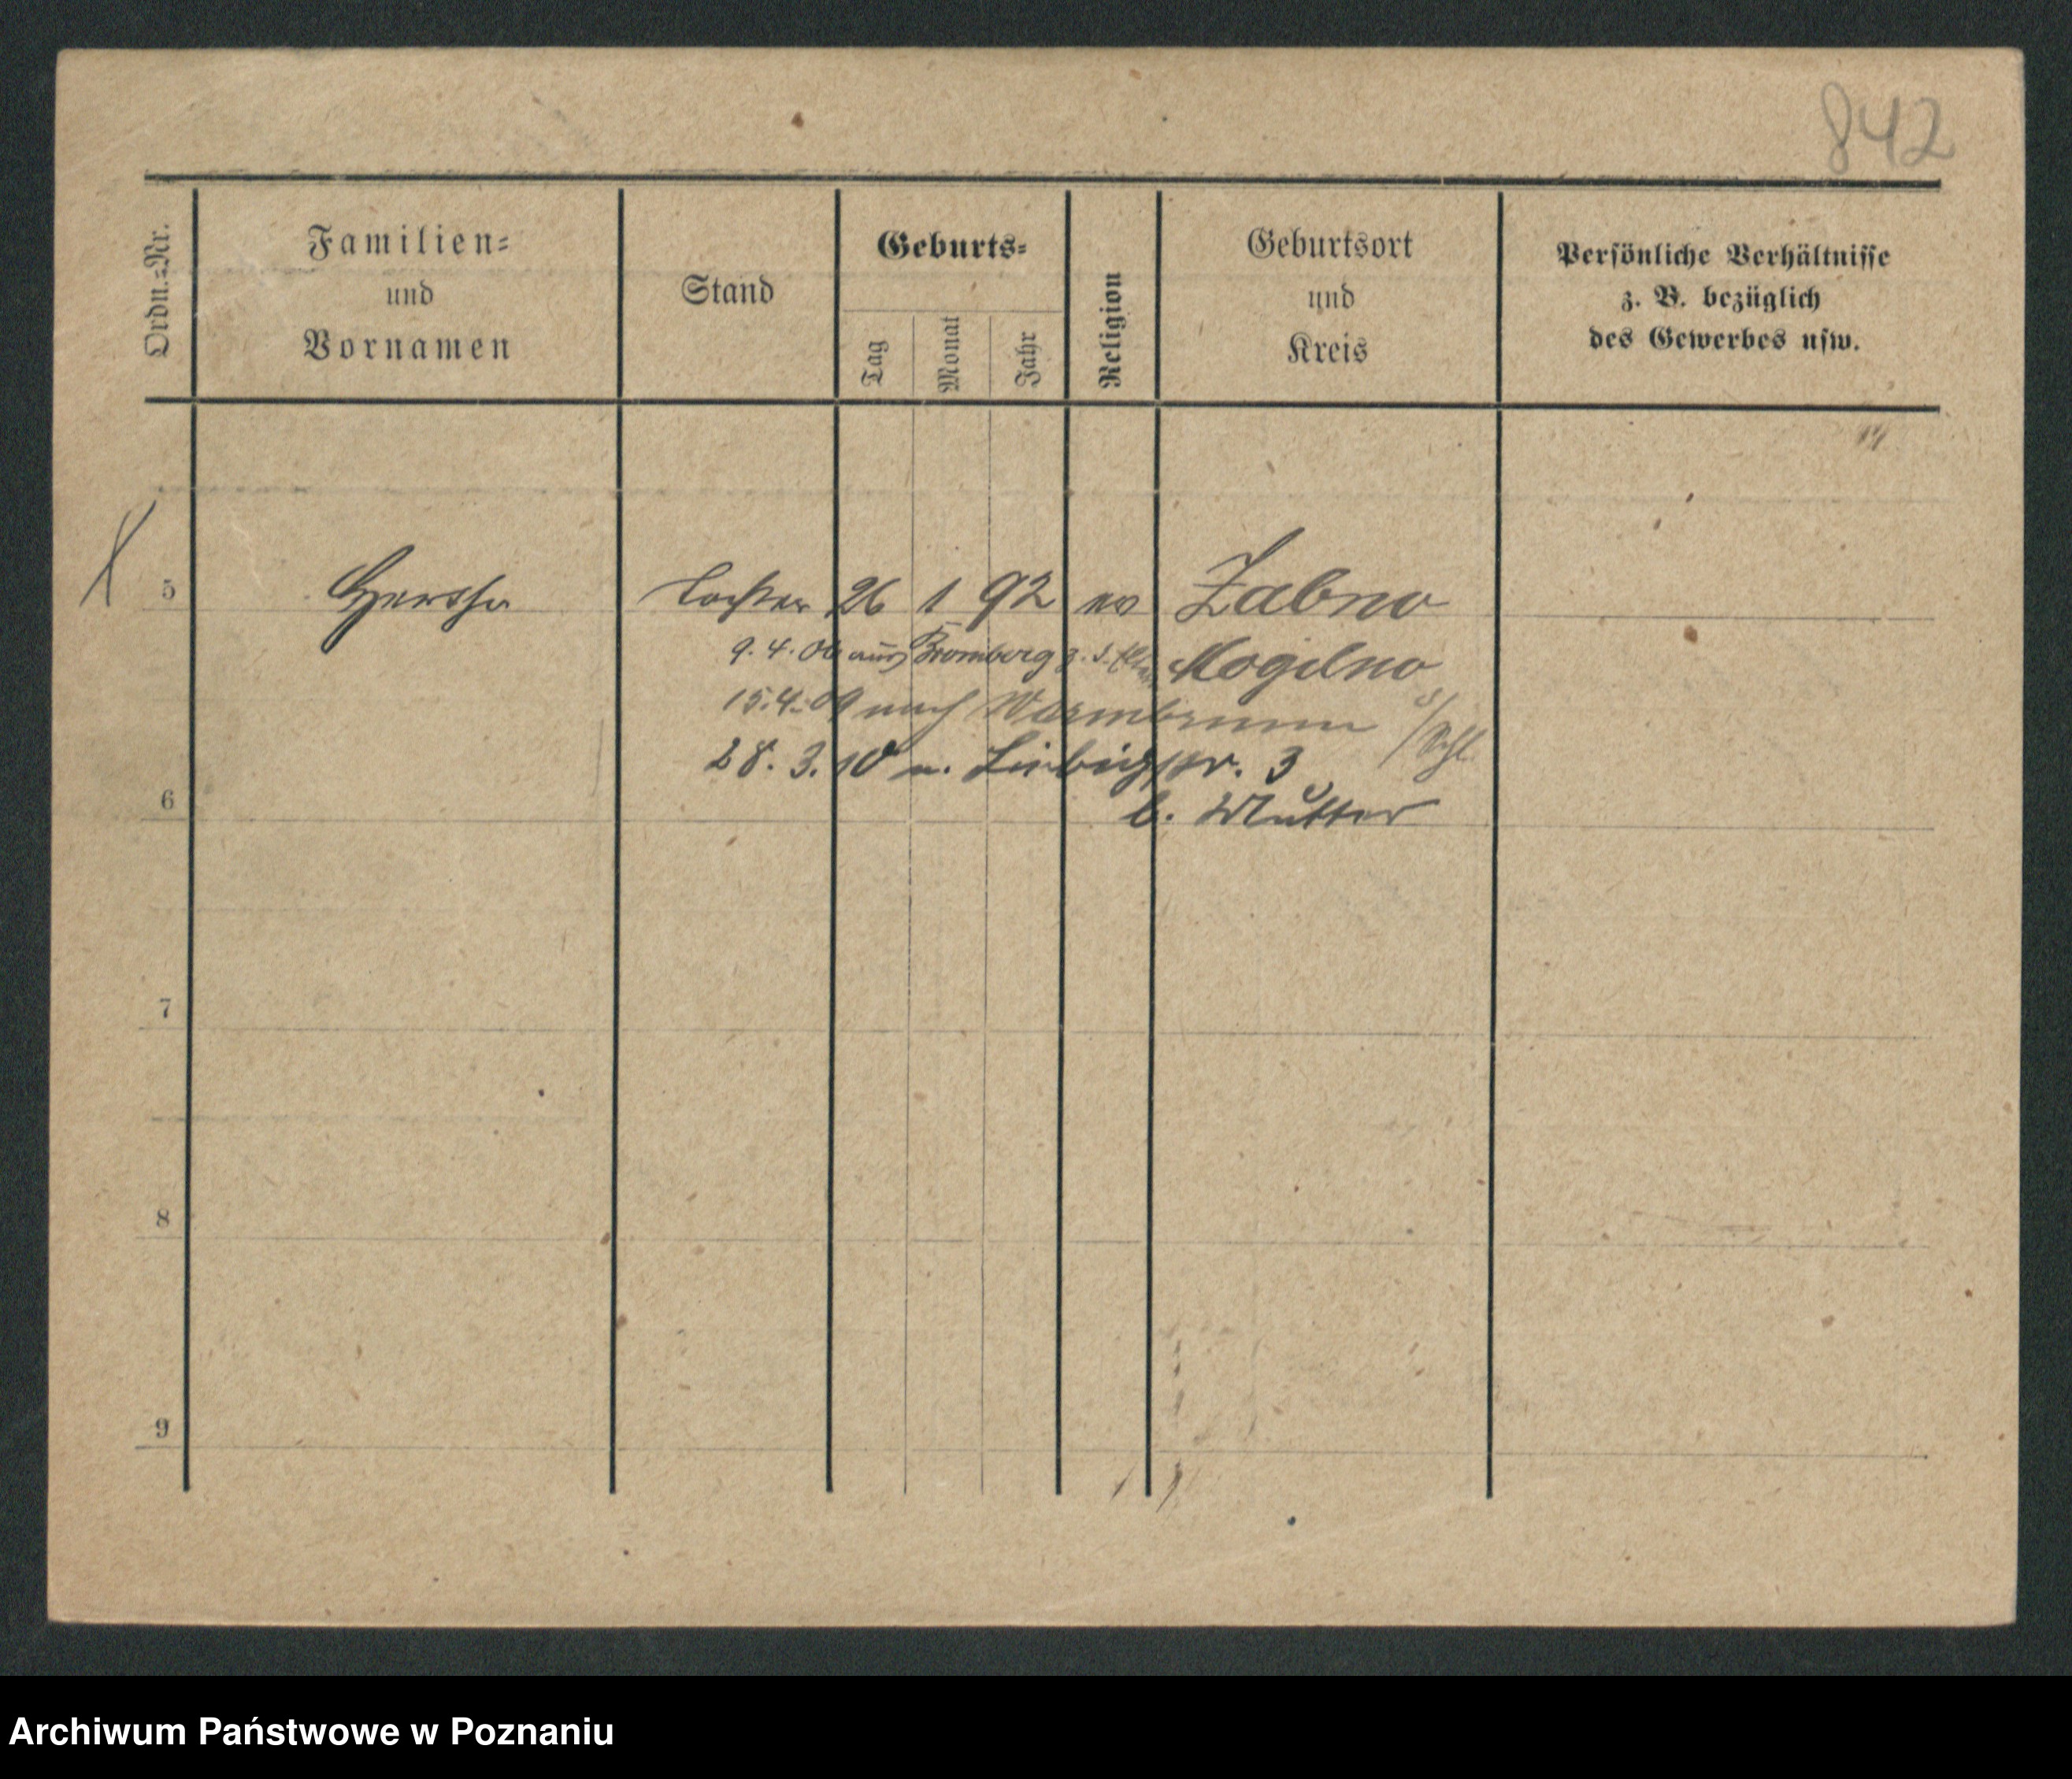 842
Ordn.-Nr.
Familien-
und
Vornamen
Stand
Geburts-
Tag
Monat
Jahr
Religion
Geburtsort
und
Kreis
Persönliche Verhältnisse
z. B. bezüglich
des Gewerbes usw.
5 Tochter 26 1 92 ev Zabno
9. 4. 06 aus Bromberg z. d. Mogilno
15.4.09 nach Warmbrunn i/Schl
28. 3. 10 n. Liebigstr. 3
6
b. Mutter
7
8
9
Archiwum Państwowe w Poznaniu